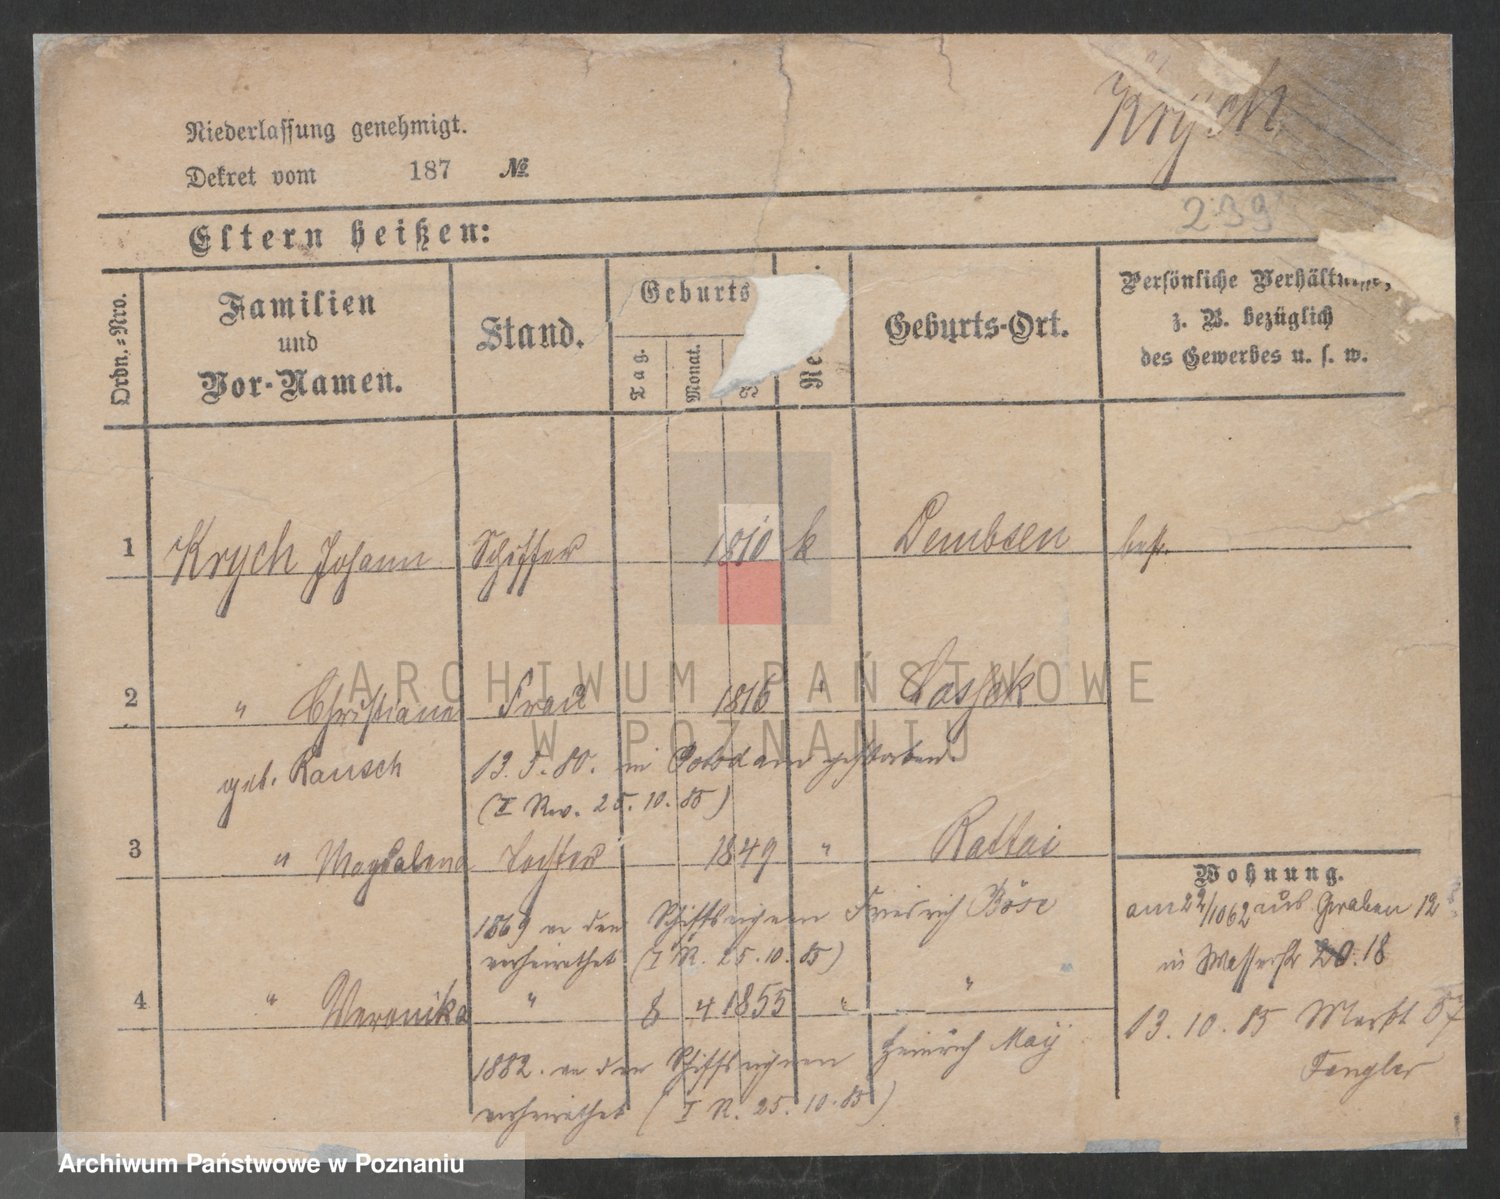 Krych
Niederlassung genehmigt.
Dekret vom 187 №
239
Eltern heißen:
Ordn.-Nro.
Familien
und
Vor-Namen.
Stand.
Geburts
Tag.
Monat.
Re
Geburts-Ort.
Persönliche Verhältnisse,
z. B. bezüglich
des Gewerbes u. s. w.
1 Krych Johann Schiffer 1810 k Dembsen
2 " Christiane Frau 1816 "
geb. Rausch 13. 5. 80. in Potsdam gestorben.
(I Rev. 25. 10. 85)
3 " Magdalena Tochter 1849 " Rattai
1869 an den Schiffseigner Friedrich Böse
verheirathet (I R. 25. 10. 85)
4 " Veronika " 8 4 1855 " "
1882. an den Schiffseigner Heinrich May
verheirathet (I R. 25. 10. 85)
Wohnung.
am 22/10 62 aus Graben 12
in Wasserstr 20. 18
13. 10. 85 Markt 57
Fengler
ARCHIWUM PAŃSTWOWE
W POZNANIU
Archiwum Państwowe w Poznaniu